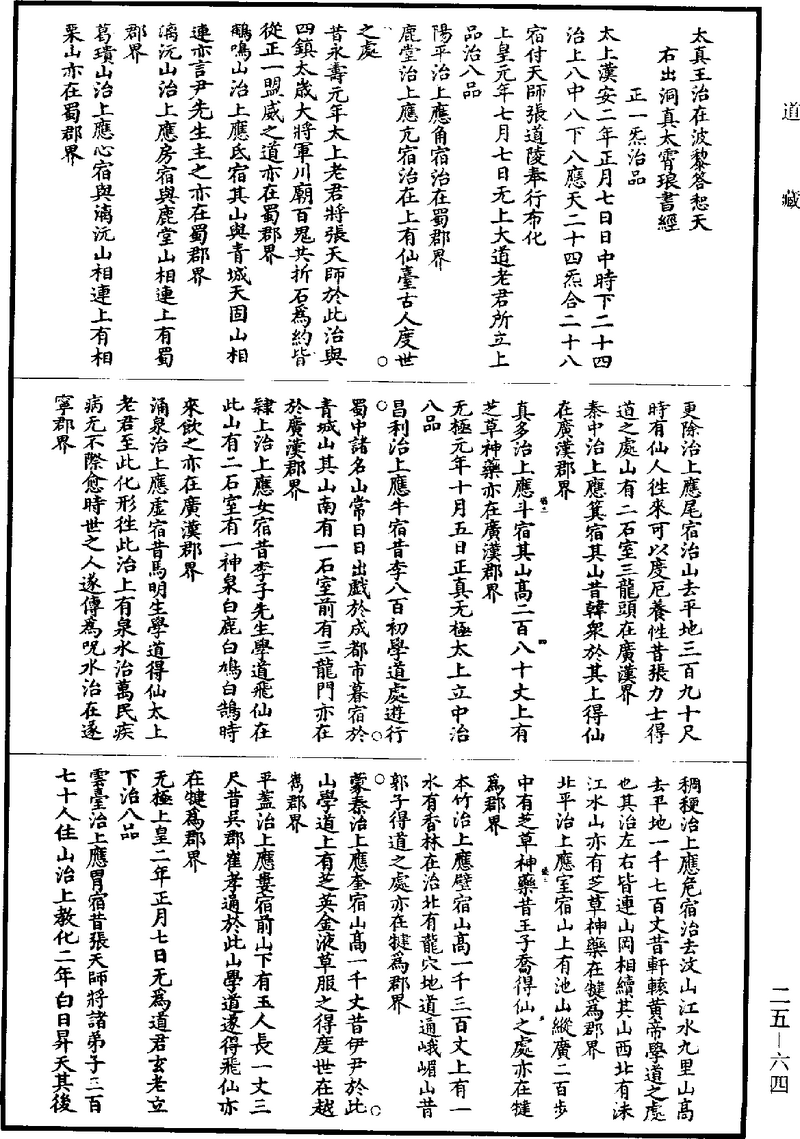 道藏
太真王治在波黎答恕天
右出洞真太霄琅書經
正一炁治品
太上漢安二年正月七日日中時下二十四
治上八中八下八應天二十四炁合二十八
宿付天師張道陵奉行布化
上皇元年七月七日无上大道老君所立上
品治八品
陽平治上應角宿治在蜀郡界
鹿堂治上應亢宿治在上有仙臺古人度世
之處
昔永壽元年太上老君將張天師於此治與
四鎮太歲大將軍川廟百鬼共折石爲約皆
從正一盟威之道亦在蜀郡界
鶴鳴山治上應氐宿其山與青城天固山相
連亦言尹先生主之亦在蜀郡界
漓沅山治上應房宿與鹿堂山相連上有蜀
郡界
葛璝山治上應心宿與漓沅山相連上有相
栗山亦在蜀郡界
更除治上應尾宿治山去平地三百九十尺
時有仙人往來可以度厄養性昔張力士得
道之處山有二石室三龍頭在廣漢界
秦中治上應箕宿其山昔韓衆於其上得仙
在廣漢郡界
真多治上應斗宿其山高二百八十丈上有
芝草神藥亦在廣漢郡界
无極元年十月五日正真无極太上立中治
八品
昌利治上應牛宿昔李八百初學道處遊行
蜀中諸名山常日日出戲於成都市暮宿於
青城山其山南有一石室前有三龍門亦在
於廣漢郡界
隸上治上應女宿昔李子先生學道飛仙在
此山有二石室有一神泉白鹿白鳩白鵠時
來飲之亦在廣漢郡界
涌泉治上應虛宿昔馬明生學道得仙太上
老君至此化形往此治上有泉水治萬民疾
病无不際愈時世之人遂傳爲呪水治在遂
寧郡界
稠稉治上應危宿治去汶山江水九里山高
去平地一千七百丈昔軒轅黄帝學道之處
也其治左右皆連山岡相續其山西北有沬
江水山亦有芝草神藥在犍爲郡界
北平治上應室宿山上有池山縱廣二百步
中有芝草神藥昔王子喬得仙之處亦在犍
爲郡界
本竹治上應壁宿山高一千三百丈上有一
水有香林在治北有龍穴地道通峨嵋山昔
郭子得道之處亦在犍爲郡界
蒙秦治上應奎宿山高一千丈昔伊尹於此
山學道上有芝英金液草服之得度世在越
嶲郡界
平蓋治上應婁宿前山下有玉人長一丈三
尺昔吳郡崔孝通於此山學道遂得飛仙亦
在犍爲郡界
无極上皇二年正月七日无爲道君玄老立
下治八品
雲臺治上應胃宿昔張天師將諸弟子三百
七十人住山治上教化二年白日昇天其後
二五—六四